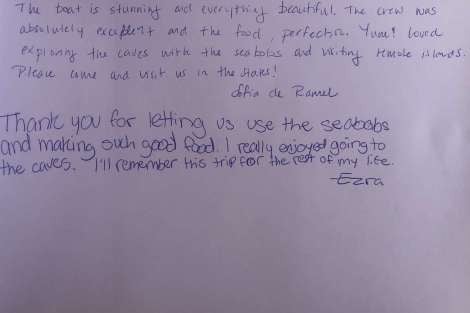 The boat is stunning and everything beautiful. The crew was
absolutely excellent and the food, perfection. Yum! Loved
exploring the caves with the seabobs and visiting remote islands.
Please come and visit us in the States!
de Ramel
Thank you for letting us use the seabobs
and making such good food. I really enjoyed going to
the caves. I'll remember this trip for the rest of my life.
Ezra